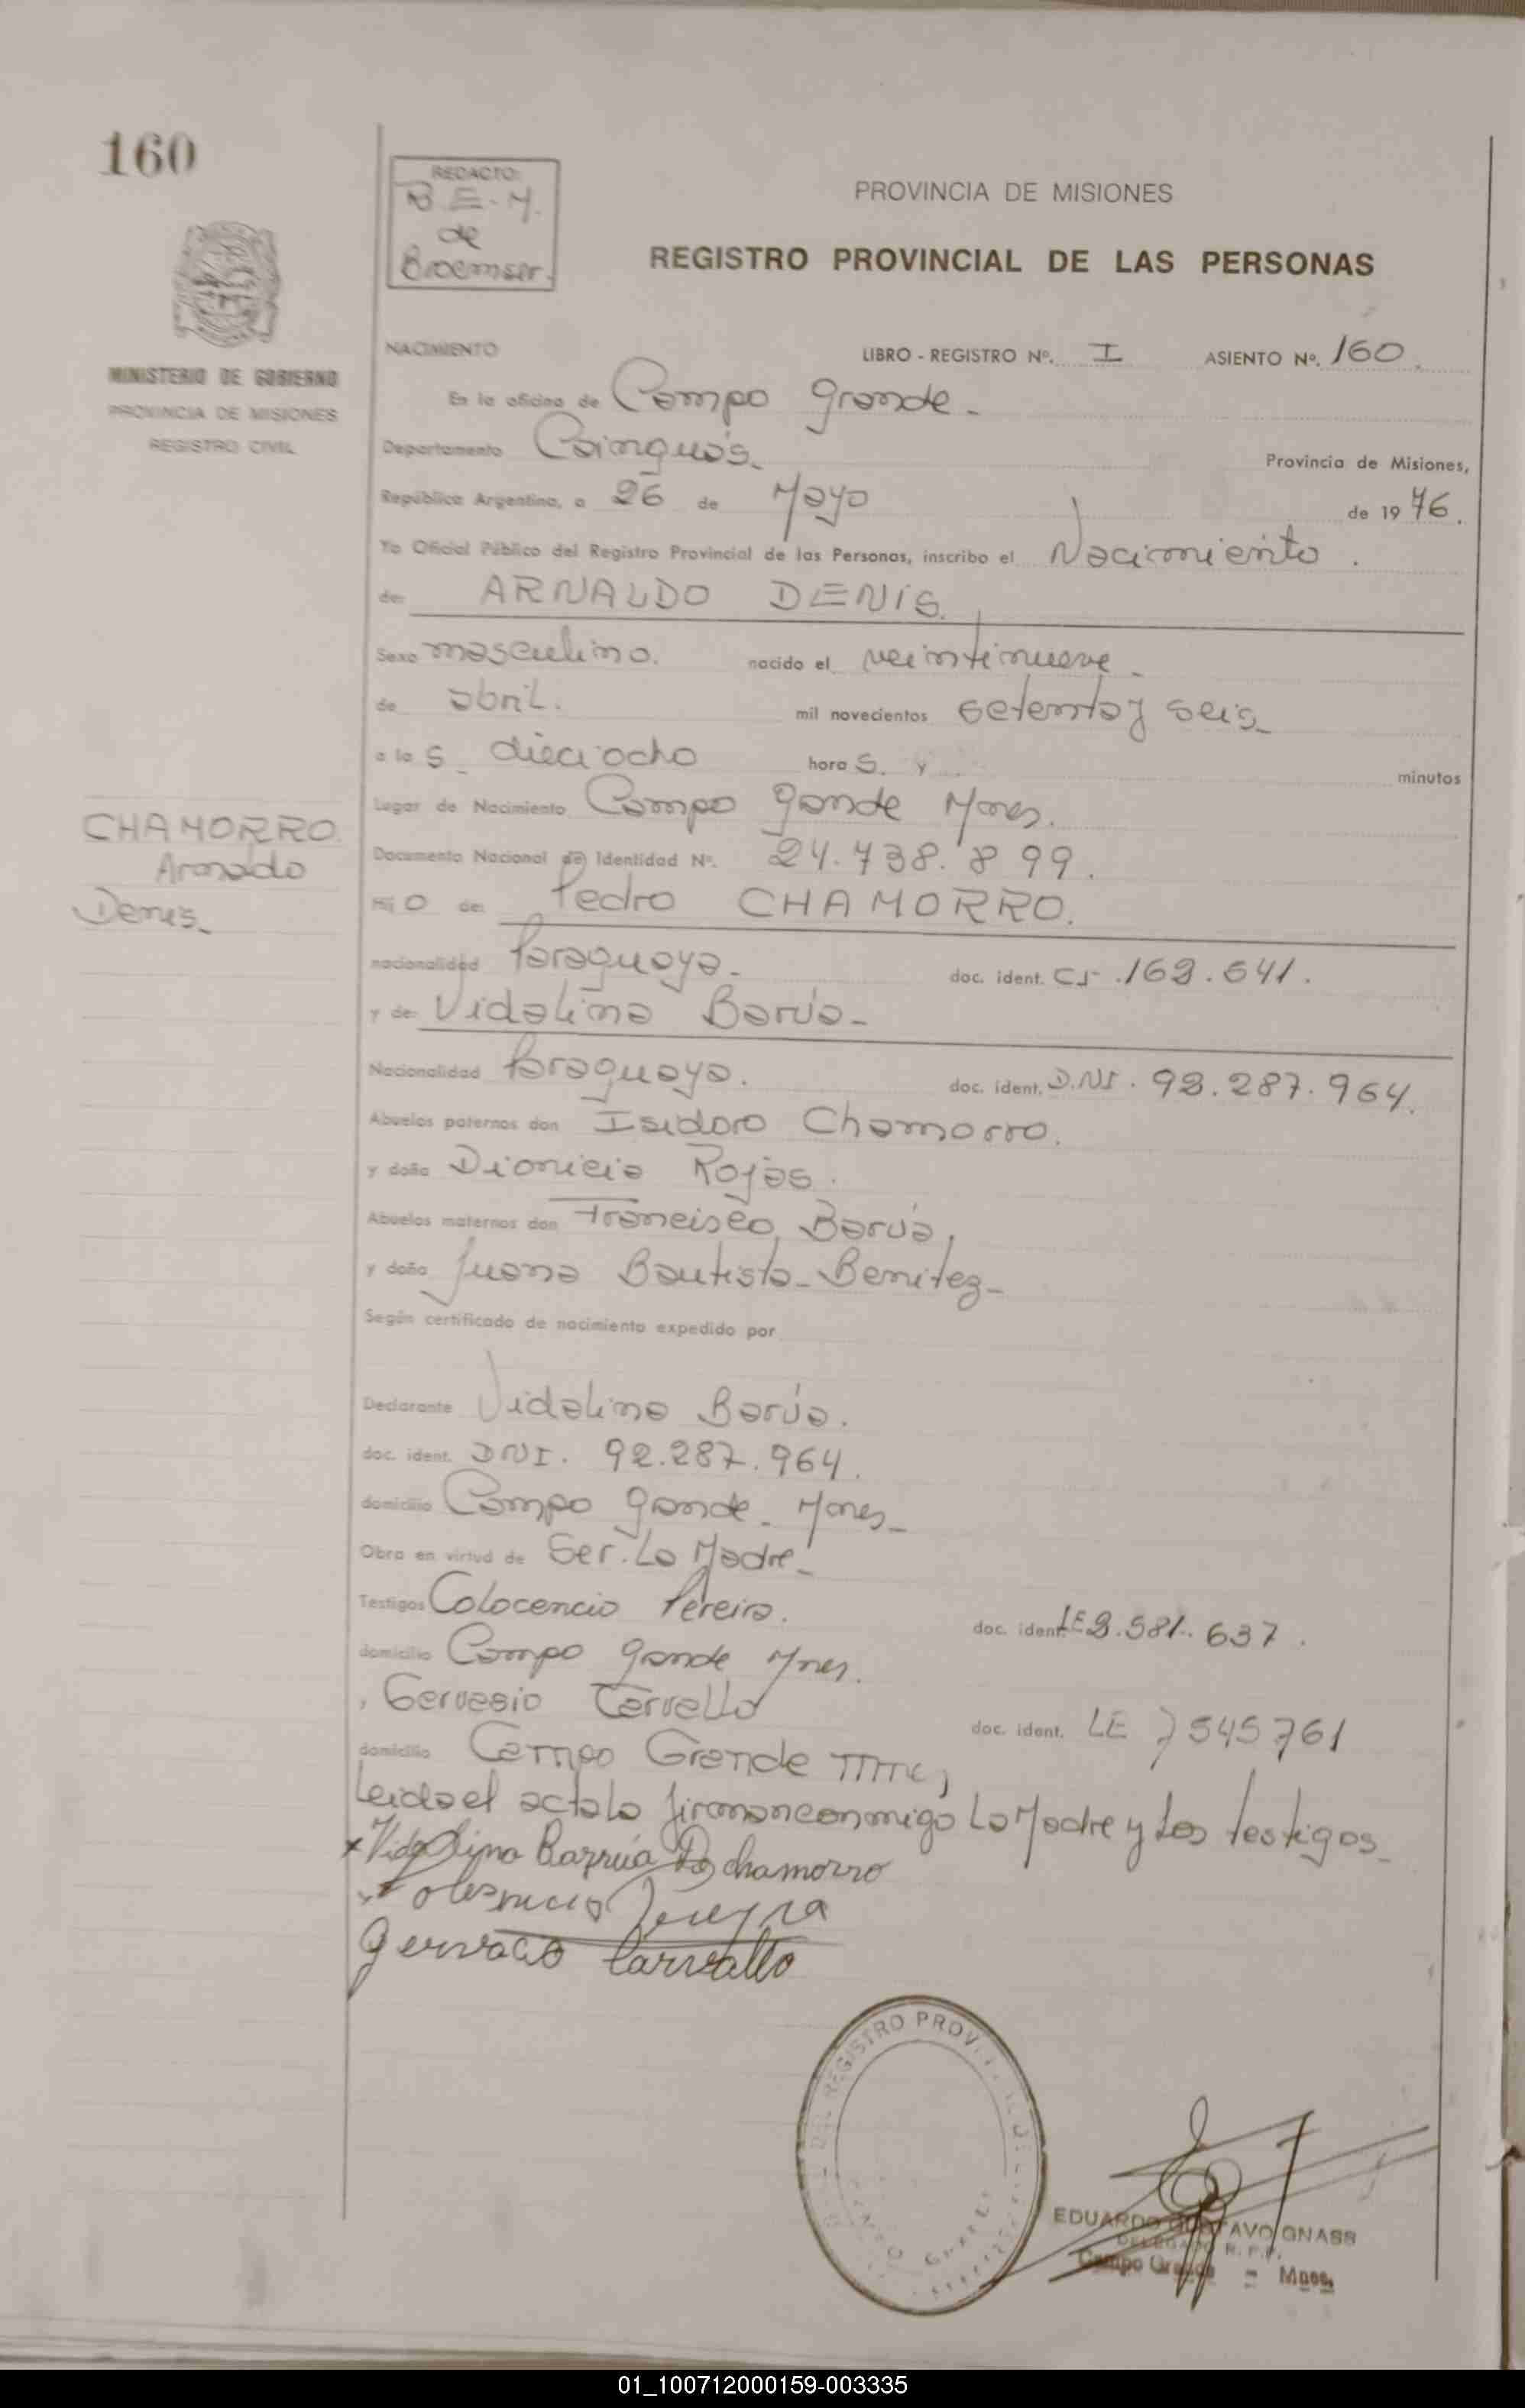 160
REDACTO:
B.E.M.
de
Broemser.
PROVINCIA DE MISIONES
REGISTRO PROVINCIAL DE LAS PERSONAS
MINISTERIO DE GOBIERNO
PROVINCIA DE MISIONES
REGISTRO CIVIL
NACIMIENTO LIBRO - REGISTRO Nº. I ASIENTO Nº. 160
En la oficina de Campo Grande -
Departamento Cainguás - Provincia de Misiones,
República Argentina, a 26 de Mayo de 1976.
Yo Oficial Público del Registro Provincial de las Personas, inscribo el Nacimiento.
de: ARNALDO DENIS.
Sexo masculino. nacido el veintinueve -
de abril. mil novecientos setenta y seis -
a las - dieciocho horas. y minutos
Lugar de Nacimiento Campo Gande Mnes.
CHAMORRO.
Arnaldo
Denis -
Documento Nacional de Identidad Nº. 24.738.899.
Hijo de: Pedro CHAMORRO.
nacionalidad Paraguaya - doc. ident. CI .169.641.
y de: Vidalina Barúa -
Nacionalidad Paraguaya. doc. ident. D.NI. 92.287.964.
Abuelos paternos don Isidoro Chamorro.
y doña Dionicia Rojas.
Abuelos maternos don Francisco Barúa,
y doña Juana Bautista - Benitez -
Según certificado de nacimiento expedido por
Declarante Vidalina Barúa.
doc. ident. DNI. 92.287.964.
domicilio Campo Grande - Mnes -
Obra en virtud de Ser. La Madre -
Testigos Colocencio Pereira. doc. ident. LE 9.581.637.
domicilio Campo Gande Mnes.
, Gervasio Carvallo doc. ident. LE 7545761
domicilio Campo Grande Mnes
Leida el acta la firman conmigo La Madre y Los testigos -
x Vidalina Barrúa De chamorro
Gervacio Carvallo
REGISTRO PROV
EDUARDO GUSTAVO GNASS
DELEGADO R. P. P.
Campo Grande - Mnes.
01_100712000159-003335